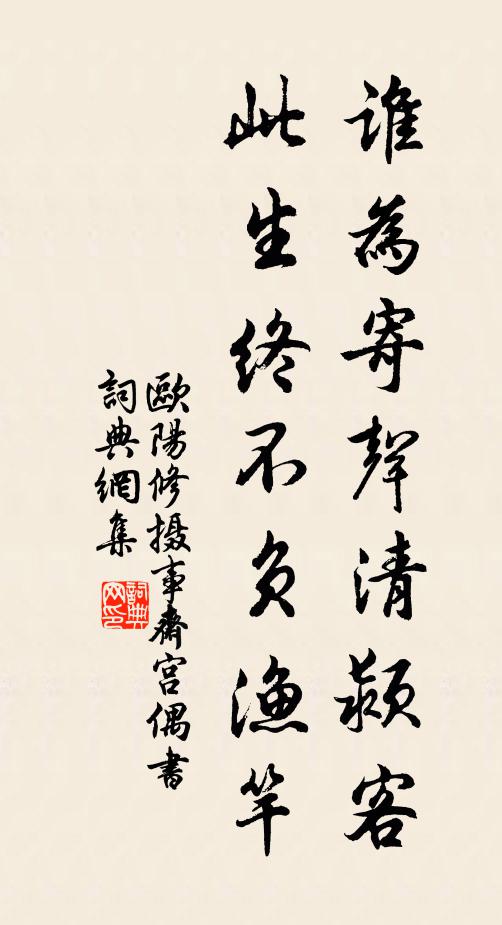 誰為寄聲清潁客
此生終不負漁竿
歐陽修攝事齋宮偶書
詞典網集
詞典网印